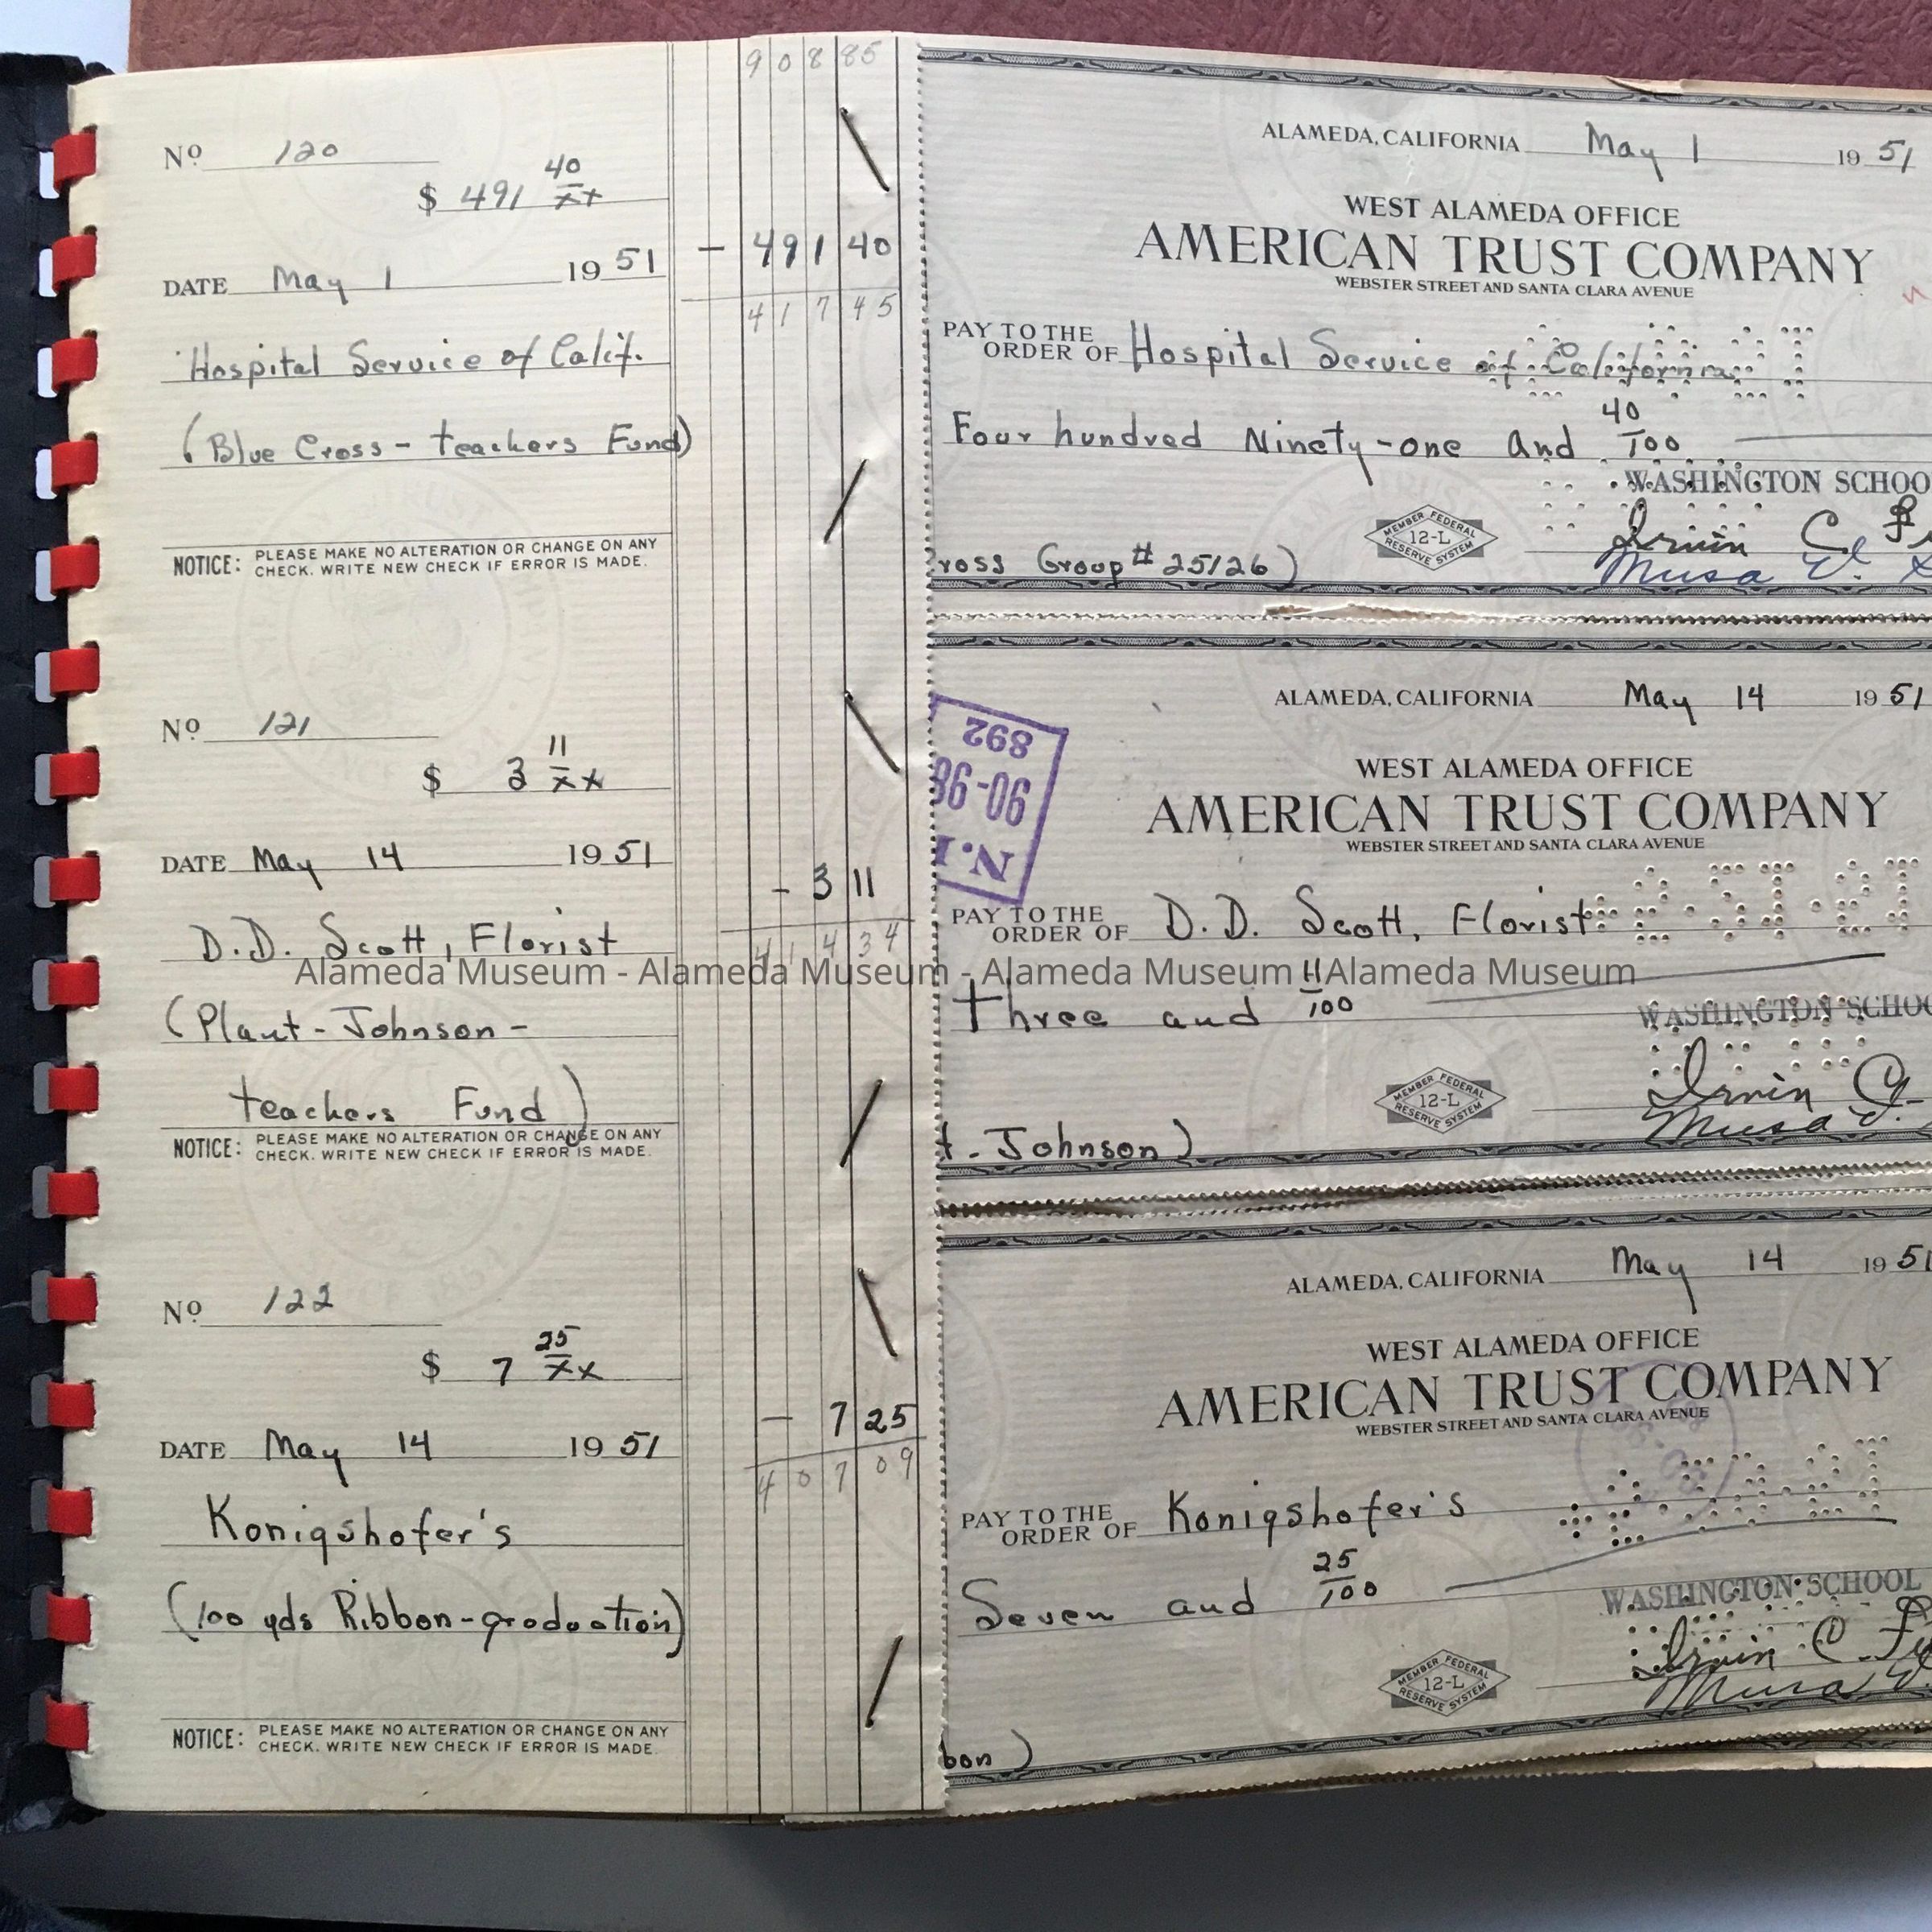 908 85
Nº 120
$ 491 40/xx
DATE May 1 1951
- 491 40
417 45
Hospital Service of Calif.
(Blue Cross - teachers Fund)
NOTICE: PLEASE MAKE NO ALTERATION OR CHANGE ON ANY
CHECK. WRITE NEW CHECK IF ERROR IS MADE.
Nº 121
$ 3 11/xx
DATE May 14 1951
- 3 11
414 34
D.D. Scott, Florist
(Plant - Johnson -
teachers Fund)
NOTICE: PLEASE MAKE NO ALTERATION OR CHANGE ON ANY
CHECK. WRITE NEW CHECK IF ERROR IS MADE.
Nº 122
$ 7 25/xx
- 7 25
DATE May 14 1951
407 09
Konigshofer's
(100 yds Ribbon - graduation)
NOTICE: PLEASE MAKE NO ALTERATION OR CHANGE ON ANY
CHECK. WRITE NEW CHECK IF ERROR IS MADE.
ALAMEDA, CALIFORNIA May 1 1951
WEST ALAMEDA OFFICE
AMERICAN TRUST COMPANY
WEBSTER STREET AND SANTA CLARA AVENUE
PAY TO THE
ORDER OF Hospital Service of California
Four hundred Ninety-one and 40/100
WASHINGTON SCHOO
MEMBER FEDERAL
12-L
RESERVE SYSTEM
Irvin C.
Musa E.
ross Group # 25126)
ALAMEDA, CALIFORNIA May 14 1951
892
90-98
WEST ALAMEDA OFFICE
AMERICAN TRUST COMPANY
WEBSTER STREET AND SANTA CLARA AVENUE
PAY TO THE
ORDER OF D.D. Scott, Florist
Three and 11/100
WASHINGTON SCHOO
MEMBER FEDERAL
12-L
RESERVE SYSTEM
Irvin C.
Musa E.
t. Johnson)
ALAMEDA, CALIFORNIA May 14 1951
WEST ALAMEDA OFFICE
AMERICAN TRUST COMPANY
WEBSTER STREET AND SANTA CLARA AVENUE
PAY TO THE
ORDER OF Konigshofer's
Seven and 25/100
WASHINGTON SCHOOL
MEMBER FEDERAL
12-L
RESERVE SYSTEM
Irvin C.
Musa E.
bon)
Alameda Museum - Alameda Museum - Alameda Museum - Alameda Museum